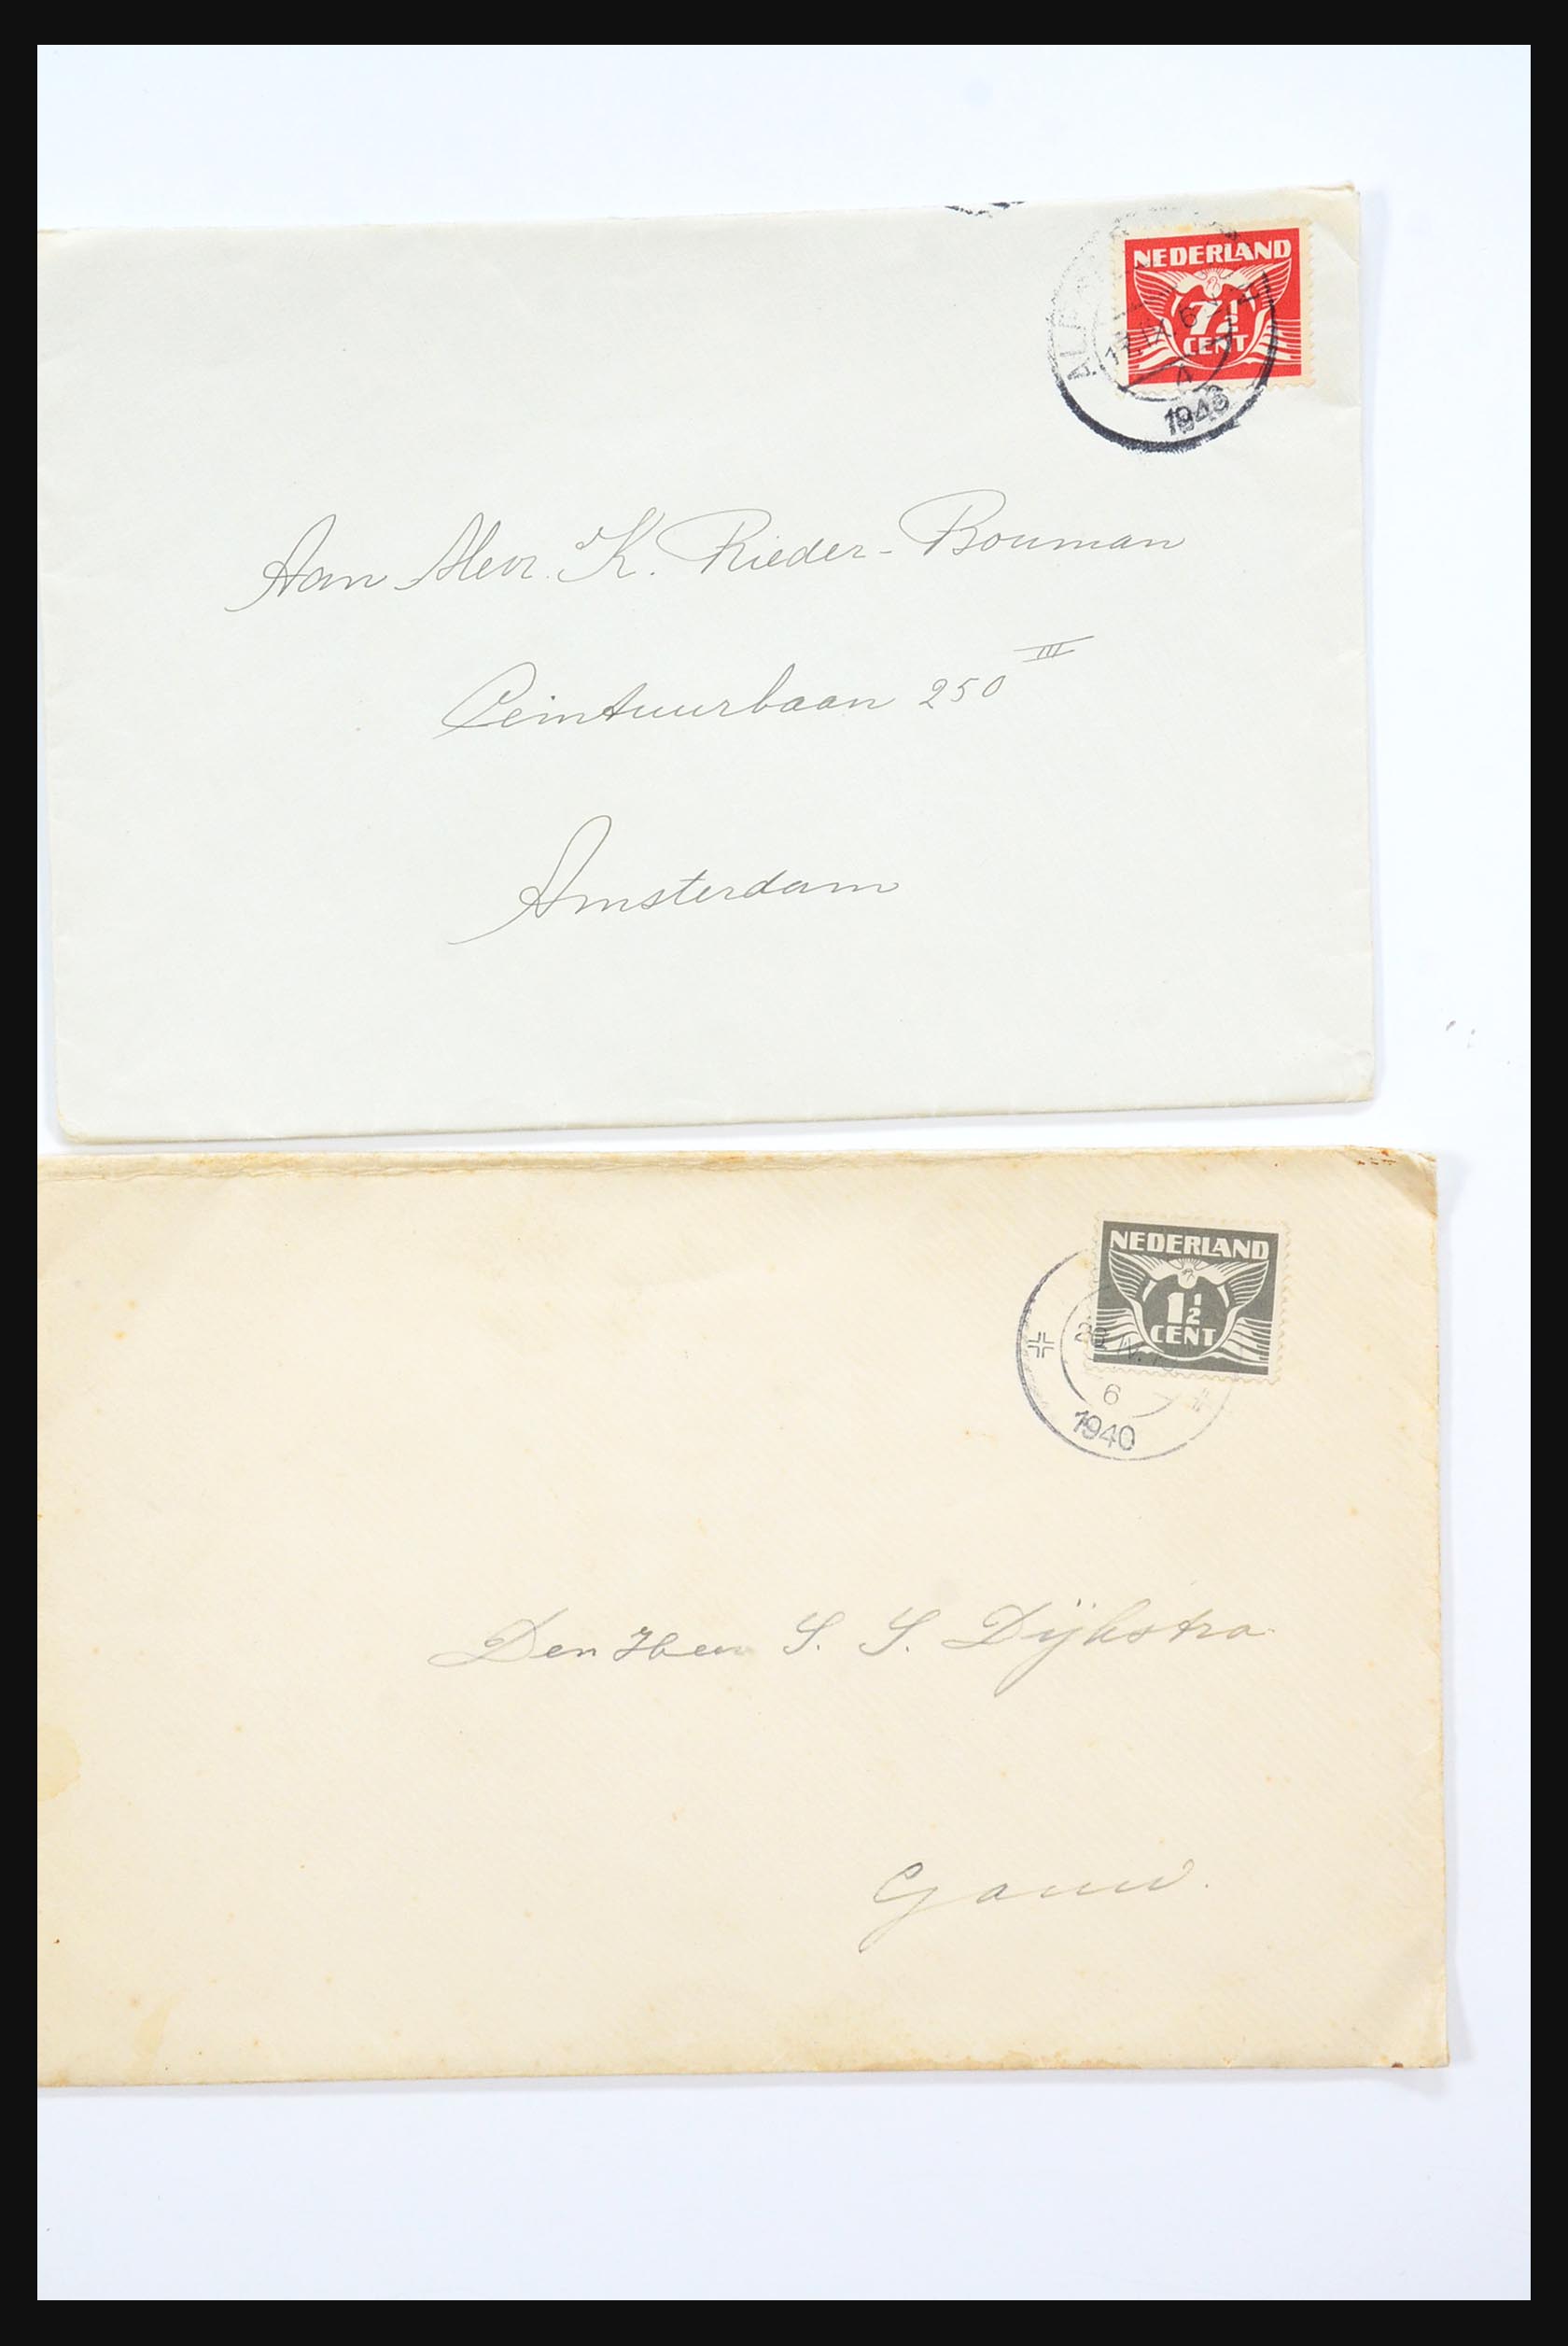 NEDERLAND
7½
CENT
4
1943
Aan Mevr. K. Rieder-Bouman
Ceintuurbaan 250 III
Amsterdam
NEDERLAND
1½
CENT
6
1940
Den Heer S. S. Dijkstra
Gauw.